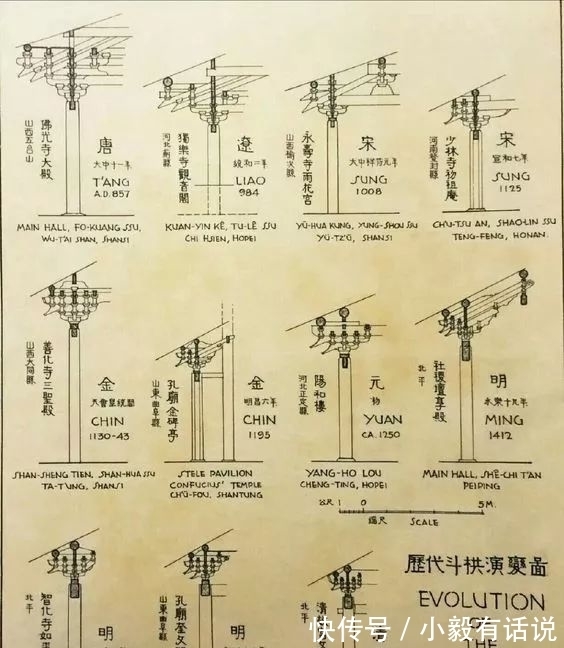 佛光寺大殿
山西五台山
唐
大中十一年
T'ANG
A.D. 857
MAIN HALL, FO-KUANG SSU,
WU-T'AI SHAN, SHANSI
獨樂寺觀音閣
河北薊縣
遼
統和二年
LIAO
984
KUAN-YIN KÊ, TU-LÊ SSU
CHI HSIEN, HOPEI
永壽寺雨花宮
山西榆次縣
宋
大中祥符元年
SUNG
1008
YÜ-HUA KUNG, YUNG-SHOU SSU
YÜ-TZ'Ŭ, SHANSI
少林寺初祖庵
河南登封縣
宋
宣和七年
SUNG
1125
CH'U-TSU AN, SHAO-LIN SSU
TENG-FENG, HONAN.
善化寺三聖殿
山西大同縣
金
天會皇統間
CHIN
1130-43
SHAN-SHENG TIEN, SHAN-HUA SSU
TA-T'UNG, SHANSI
孔廟金碑亭
山東曲阜縣
金
明昌六年
CHIN
1195
STELE PAVILION
CONFUCIUS' TEMPLE
CH'Ü-FOU, SHANTUNG
陽和樓
河北正定縣
元
初
YUAN
CA. 1250
YANG-HO LOU
CHENG-TING, HOPEI
社稷壇享殿
北平
明
永樂十九年
MING
1412
MAIN HALL, SHÊ-CHI T'AN
PEIPING
公尺 1 0 5 M.
縮尺 SCALE
智化寺如來
北平
明
孔廟奎文
山東曲阜縣
明
清
北平
歷代斗栱演變圖
EVOLUTION
OF
THE
快传号 / 小毅有话说